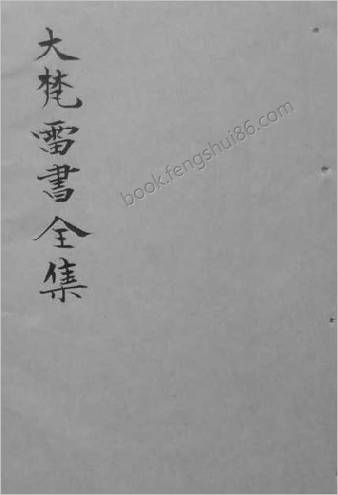 大梵雷書全集
book.fengshui86.com